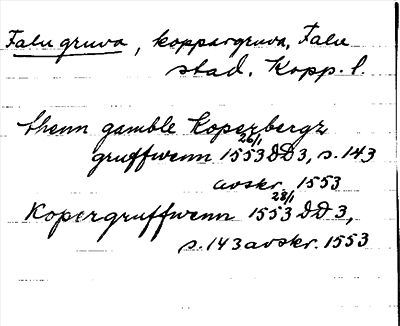 Falu gruva, koppargruva, Falu
stad. Kopp. l.
thenn gamble Koperbergz
gruffwenn 1553 26/1 DD3, s. 143
avskr. 1553
Kopergruffwenn 1553 28/1 DD3,
s. 143 avskr. 1553